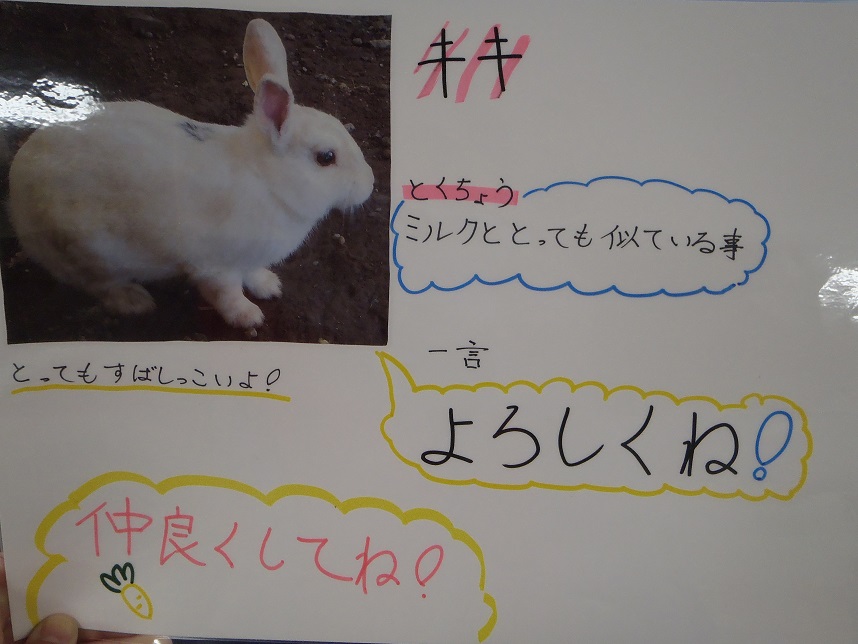 キキ
とくちょう
ミルクととっても似ている事
とってもすばしっこいよ!
一言
よろしくね!
仲良くしてね!